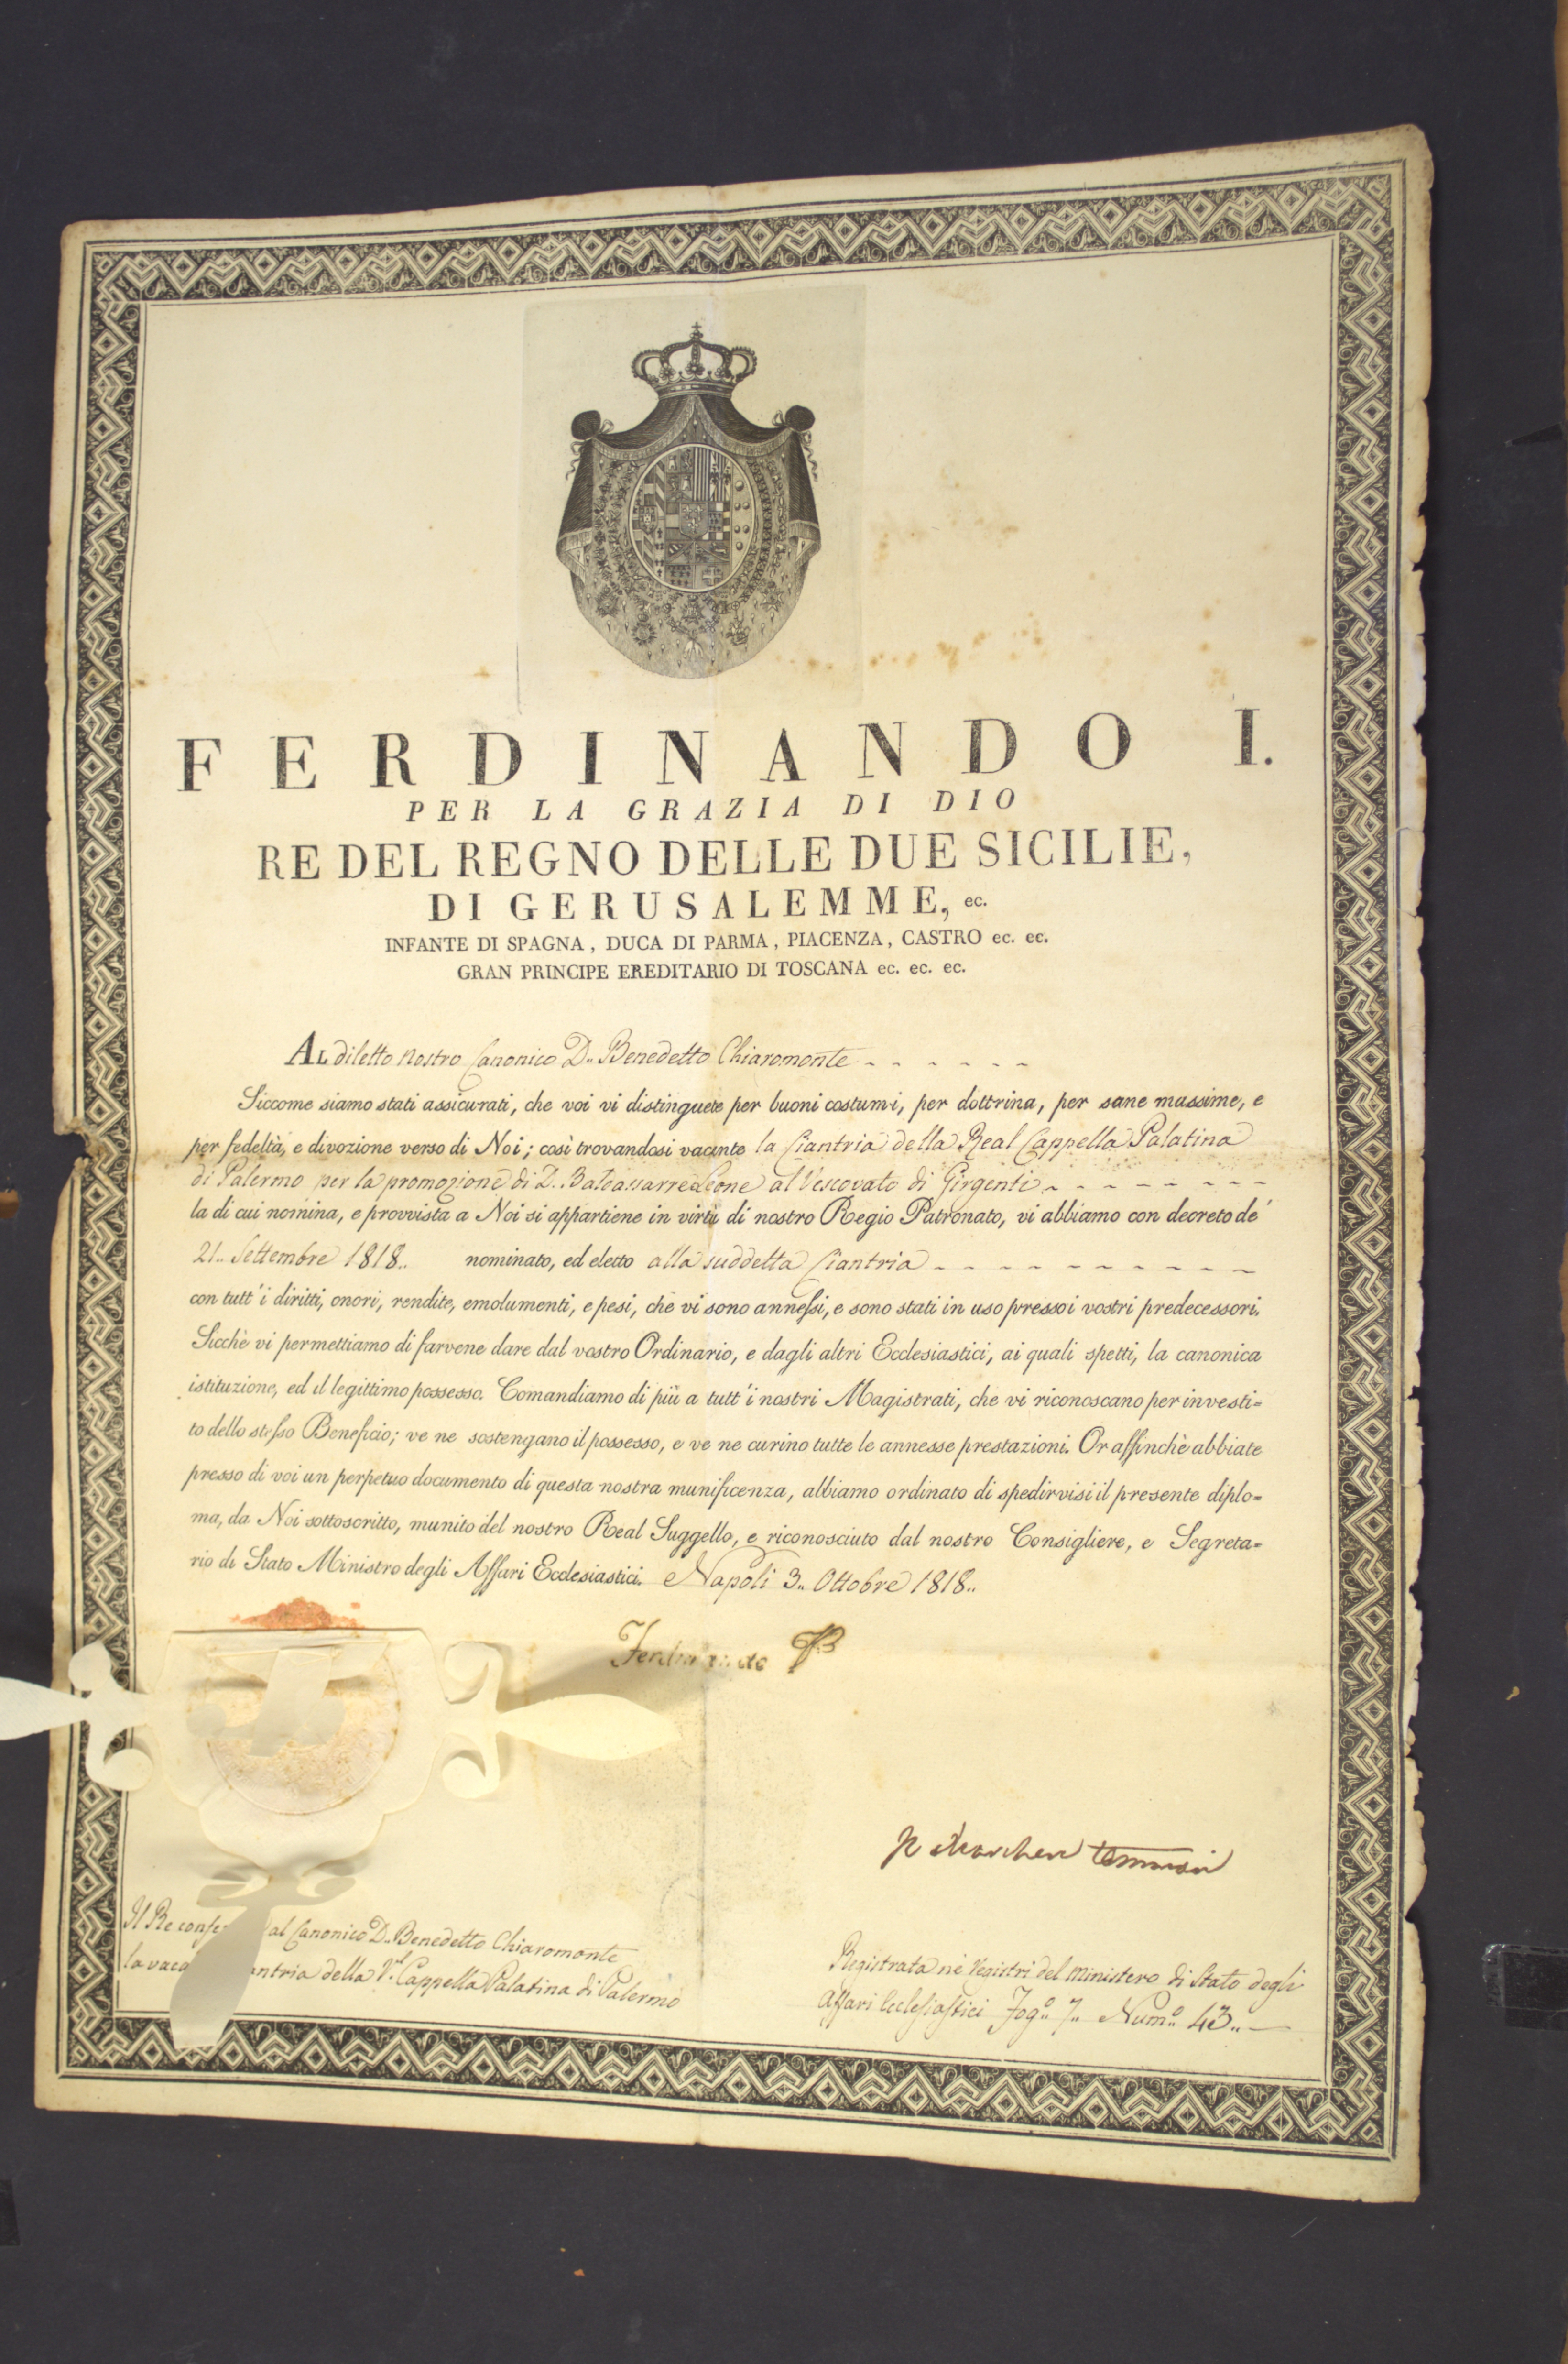 FERDINANDO I.
PER LA GRAZIA DI DIO
RE DEL REGNO DELLE DUE SICILIE,
DI GERUSALEMME, ec.
INFANTE DI SPAGNA, DUCA DI PARMA, PIACENZA, CASTRO ec. ec.
GRAN PRINCIPE EREDITARIO DI TOSCANA ec. ec. ec.
AL diletto nostro Canonico D.. Benedetto Chiaromonte
Siccome siamo stati assicurati, che voi vi distinguete per buoni costumi, per dottrina, per sane massime, e
per fedeltà, e divozione verso di Noi; così trovandosi vacante la Ciantria della Real Cappella Palatina
di Palermo per la promozione di D.. Baldassarre Leone al Vescovato di Girgenti
la di cui nomina, e provvista a Noi si appartiene in virtù di nostro Regio Patronato, vi abbiamo con decreto de'
21.. Settembre 1818.. nominato, ed eletto alla suddetta Ciantria
con tutt'i diritti, onori, rendite, emolumenti, e pesi, che vi sono annessi, e sono stati in uso presso i vostri predecessori.
Sicchè vi permettiamo di farvene dare dal vostro Ordinario, e dagli altri Ecclesiastici, ai quali spetti, la canonica
istituzione, ed il legittimo possesso. Comandiamo di più a tutt'i nostri Magistrati, che vi riconoscano per investi=
to dello stesso Beneficio; ve ne sostengano il possesso, e ve ne curino tutte le annesse prestazioni. Or affinchè abbiate
presso di voi un perpetuo documento di questa nostra munificenza, abbiamo ordinato di spedirvisi il presente diplo=
ma, da Noi sottoscritto, munito del nostro Real Suggello, e riconosciuto dal nostro Consigliere, e Segreta=
rio di Stato Ministro degli Affari Ecclesiastici. Napoli 3.. Ottobre 1818..
Ferdinando
Marchese Tommasi
Il Re al Canonico D.. Benedetto Chiaromonte
la della Cappella Palatina di Palermo
Registrata ne' Registri del Ministero di Stato degli
Affari Ecclesiastici Fog.° 7.. Num.° 43..